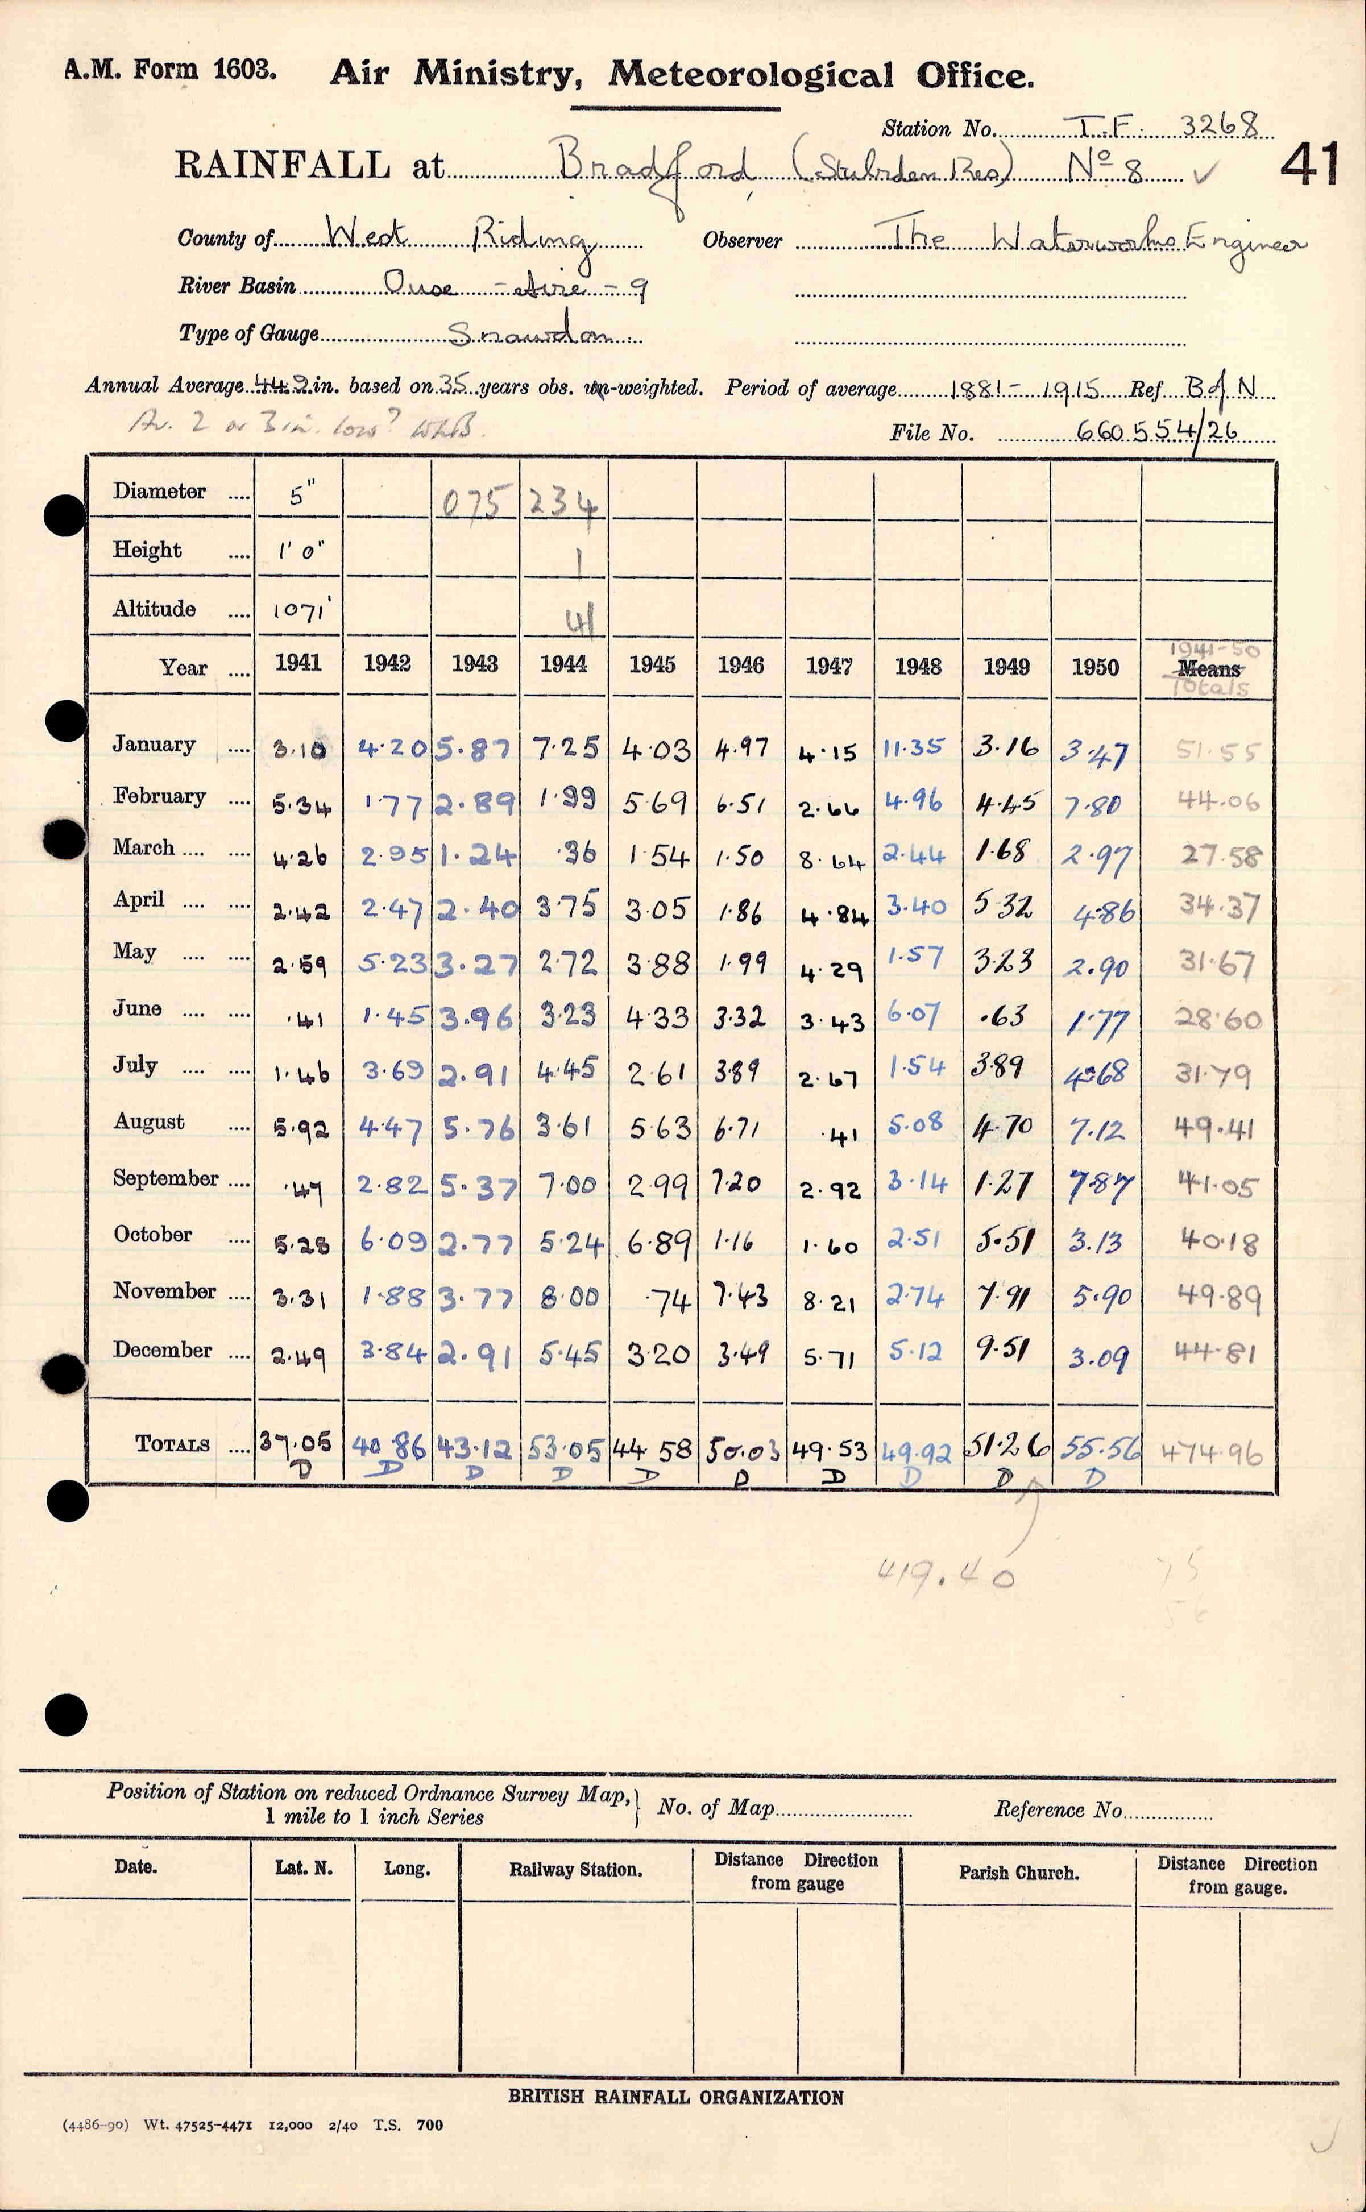 A.M. Form 1603. Air Ministry, Meteorological Office.
Station No. T.F. 3268
RAINFALL at Bradford (Stubden Res) Nº 8 ✓ 41
County of West Riding Observer The Waterworks Engineer
River Basin Ouse - Aire - 9
Type of Gauge Snowdon
Annual Average 44.9 in. based on 35 years obs. un-weighted. Period of average 1881 - 1915 Ref. B of N
Av. 2 or 3 in. low?
File No. 660554/26
Diameter .... 5" 075 234
Height .... 1' 0" 1
Altitude .... 1071' 41
Year .... 1941 1942 1943 1944 1945 1946 1947 1948 1949 1950 1941-50 Means Totals
January .... 3.10 4.20 5.87 7.25 4.03 4.97 4.15 11.35 3.16 3.47 51.55
February .... 5.34 1.77 2.89 1.99 5.69 6.51 2.66 4.96 4.45 7.80 44.06
March .... .... 4.26 2.95 1.24 .36 1.54 1.50 8.64 2.44 1.68 2.97 27.58
April .... .... 2.42 2.47 2.40 3.75 3.05 1.86 4.84 3.40 5.32 4.86 34.37
May .... .... 2.59 5.23 3.27 2.72 3.88 1.99 4.29 1.57 3.23 2.90 31.67
June .... .... .41 1.45 3.96 3.23 4.33 3.32 3.43 6.07 .63 1.77 28.60
July .... .... 1.46 3.69 2.91 4.45 2.61 3.89 2.67 1.54 3.89 4.68 31.79
August .... 5.92 4.47 5.76 3.61 5.63 6.71 .41 5.08 4.70 7.12 49.41
September .... .47 2.82 5.37 7.00 2.99 7.20 2.92 3.14 1.27 7.87 41.05
October .... 5.28 6.09 2.77 5.24 6.89 1.16 1.60 2.51 5.51 3.13 40.18
November .... 3.31 1.88 3.77 8.00 .74 7.43 8.21 2.74 7.91 5.90 49.89
December .... 2.49 3.84 2.91 5.45 3.20 3.49 5.71 5.12 9.51 3.09 44.81
TOTALS .... 37.05 40.86 43.12 53.05 44.58 50.03 49.53 49.92 51.26 55.56 474.96
D D D D D D D D D D
419.40 75
56
Position of Station on reduced Ordnance Survey Map, 1 mile to 1 inch Series } No. of Map Reference No.
Date. Lat. N. Long. Railway Station. Distance Direction from gauge Parish Church. Distance Direction from gauge.
BRITISH RAINFALL ORGANIZATION
(4486-90) Wt. 47525-4471 12,000 2/40 T.S. 700